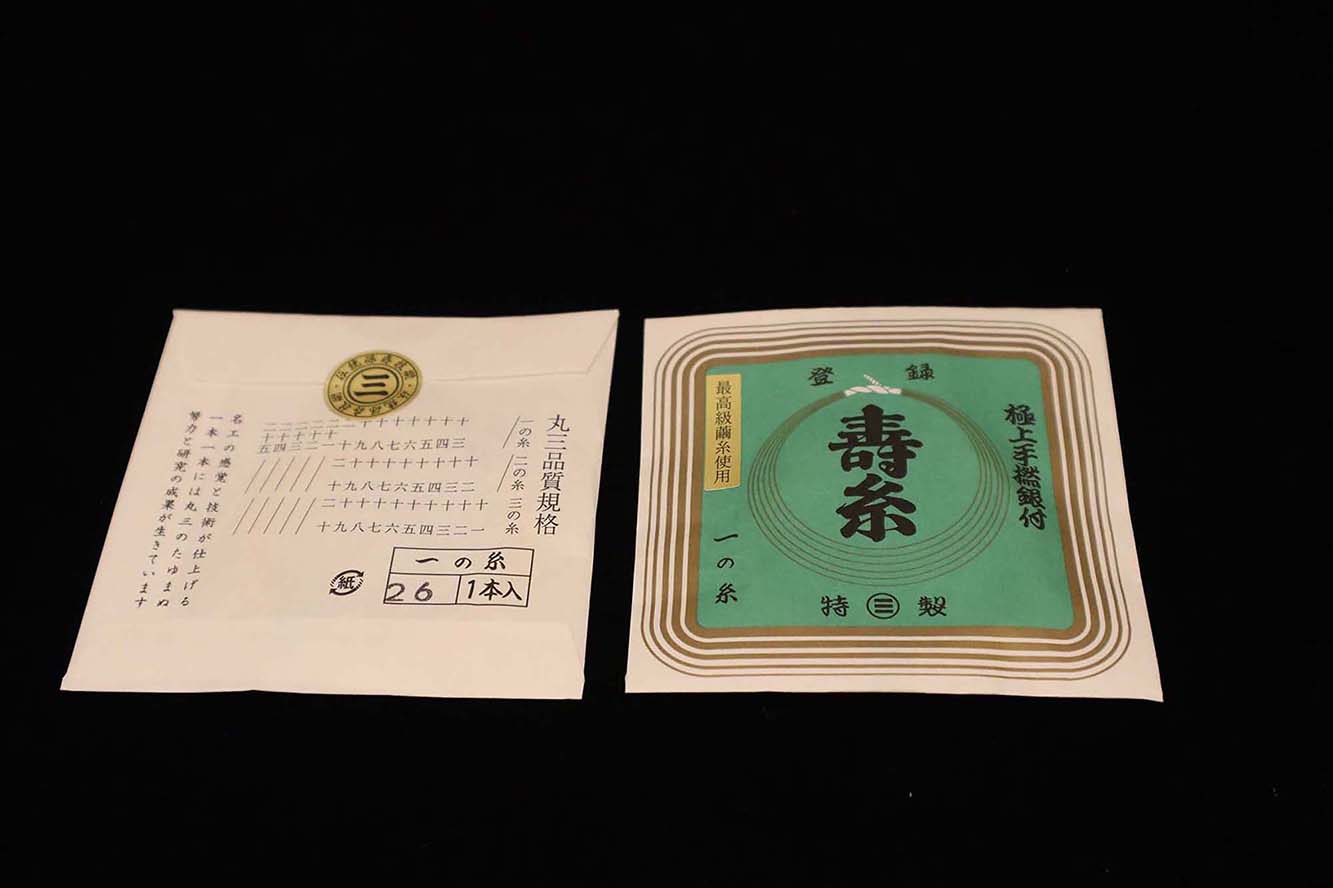 三
丸三品質規格
一の糸 二の糸 三の糸
十三 十四 十五 十六 十七 十八 十九 二十 二十一 二十二 二十三 二十四 二十五
十二 十三 十四 十五 十六 十七 十八 十九 二十
十一 十二 十三 十四 十五 十六 十七 十八 十九 二十
名工の感覚と技術が仕上げる
一本一本には丸三のたゆまぬ
努力と研究の成果が生きています
紙
一の糸
26 1本入
登録
極上手撚銀付
寿糸
最高級繭糸使用
一の糸
特 三 製